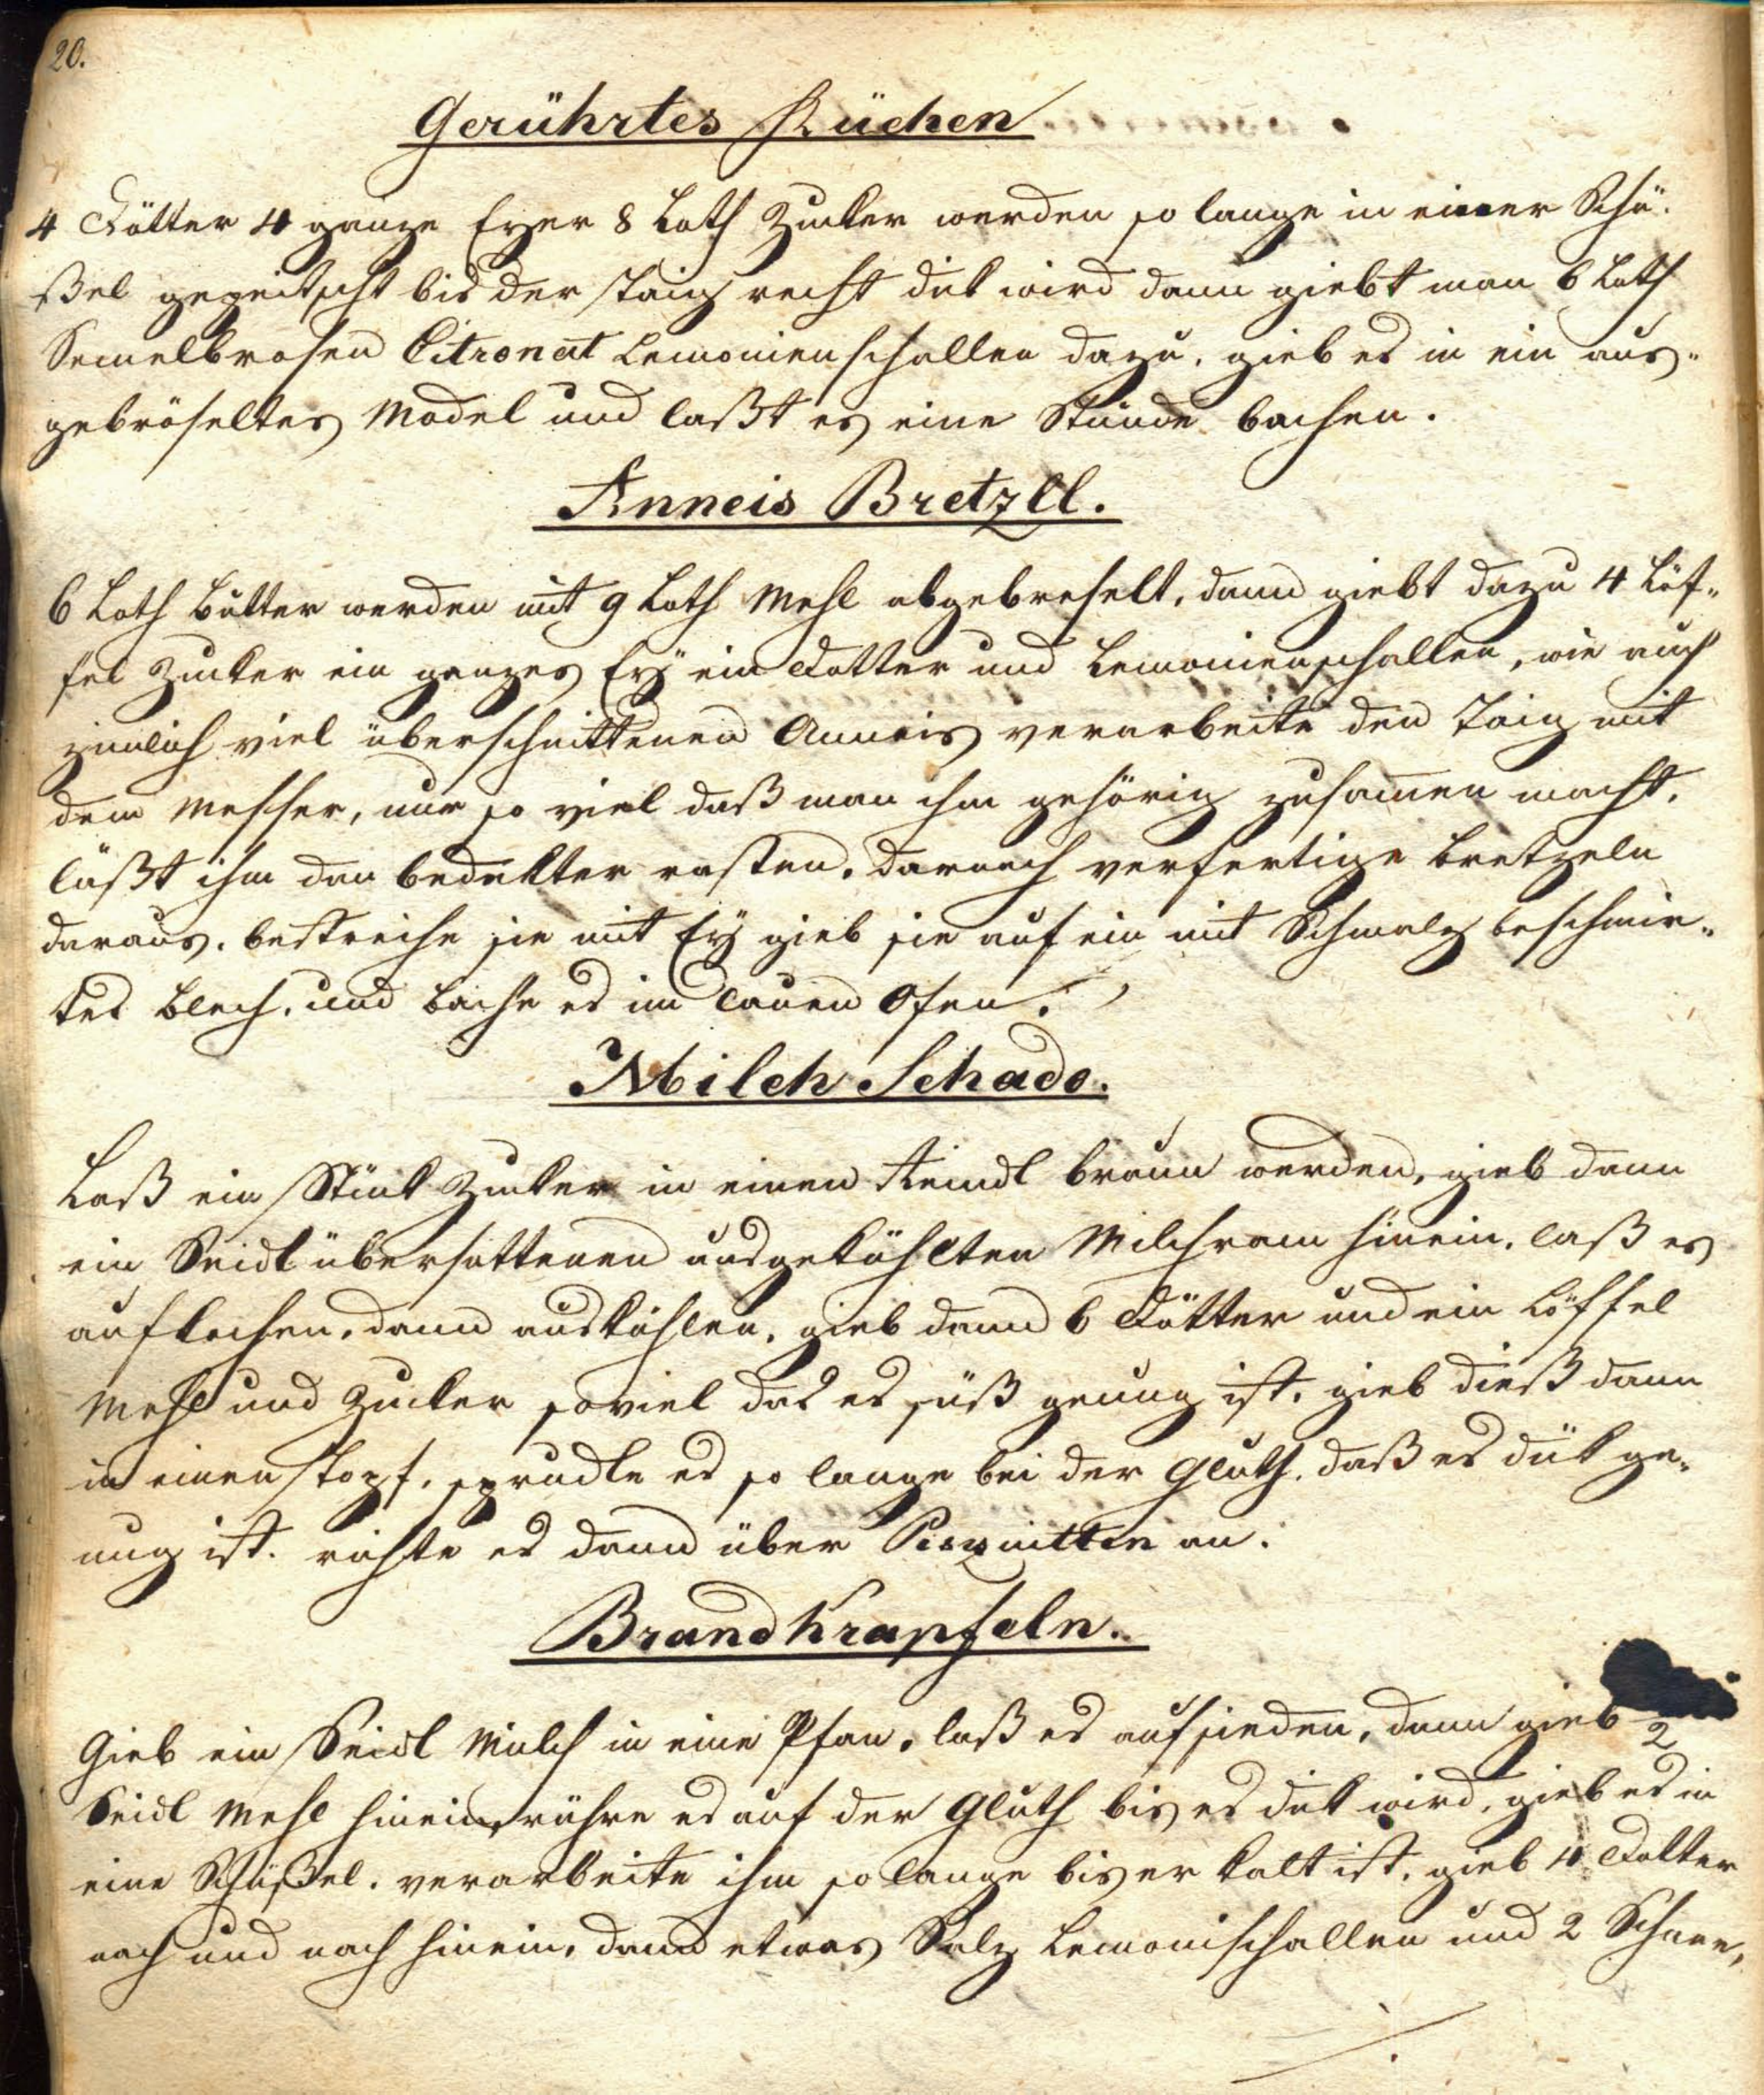 20.
Gerührtes Küchen
4 Dötter 4 ganze Eyer 8 Loth Zucker werden so lange in einer Schü-
ßel gepeitscht bis der Taig recht dik wird dann giebt man 6 Loth
Semelbrosen Citronat Lemonienschallen dazu. gieb es in ein aus-
gebröseltes Model und laßt es eine Stunde bachen.
Anneis Bretzll.
6 Loth Butter werden mit 9 Loth Mehl abgebreselt, dann giebt dazu 4 Löf-
fel Zucker ein ganzes Ey ein Dotter und Lemonienschallen, wie auch
zimlich viel überschnittenen Anneis verarbeite den Taig mit
dem Messer, nur so viel daß man ihm gehörig zusamen macht,
läßt ihm dan bedekter rasten. darnach verfertige Bretzeln
daraus. bestreiche sie mit Ey gieb sie auf ein mit Schmalz beschmir-
tes Blech. und bache es im lauen Ofen.
Milch Schado.
Laß ein Stük Zucker in einen Reindl braun werden, gieb dann
ein Seidl übersottenen ausgekühlten Milchram hinein. laß es
aufkochen. dann auskühlen. gieb dann 6 Dötter und ein Löffel
Mehl und Zucker soviel das es süß genug ist. gieb dieß dann
in einen Topf. sprudle es so lange bei der Gluth. daß es dük ge-
nug ist. richte es dann über Pisquitten an.
Brandkrapfeln.
Gieb ein Seidl Milch in eine Pfan. laß es aufsieden, dann gieb 2
Seidl Mehl hinein, rühre es auf der Gluth bis es dik wird, gieb es in
eine Schüßel. verarbeite ihm so lange bis er kalt ist. gieb 4 Dotter
nach und nach hinein, dann etwas Salz Lemonischallen und 2 Schnee,